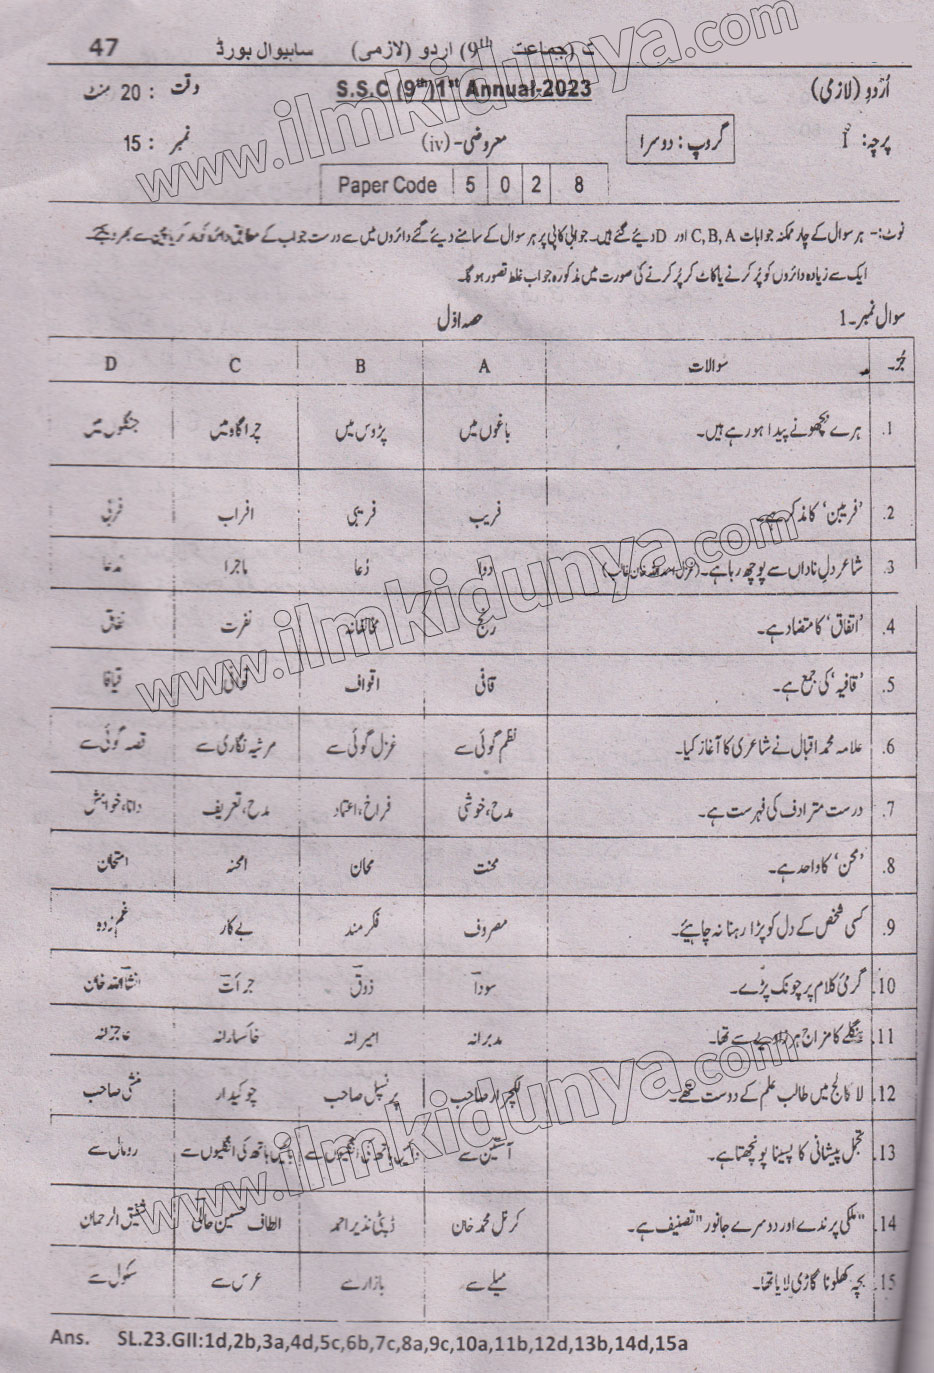 47 ت (جماعت 9th) اردو (لازمی) ساہیوال بورڈ
اُردو (لازمی) S.S.C (9th)1st Annual-2023 وقت : 20 منٹ
پرچہ: I گروپ : دوسرا معروضی-(iv) نمبر : 15
Paper Code 5 0 2 8
نوٹ:- ہر سوال کے چار ممکنہ جوابات C,B,A اور D دیئے گئے ہیں۔ جوابی کاپی پر ہر سوال کے سامنے دیئے گئے دائروں میں سے درست جواب کے مطابق دائرہ کو مارکر یا پین سے بھر دیجئے۔
ایک سے زیادہ دائروں کو پُر کرنے یا کاٹ کر پُر کرنے کی صورت میں مذکورہ جواب غلط تصور ہوگا۔
سوال نمبر۔1 حصہ اوّل
جُز۔ سوالات A B C D
1. ہرے بچھونے پیدا ہو رہے ہیں۔ باغوں میں پڑوس میں چراگاہ میں جنگلوں میں
2. 'فریبن' کا مذکر ہے۔ فریب فریبی افراب فربی
3. شاعر دلِ ناداں سے پوچھ رہا ہے۔ (غزل اسد اللہ خان غالب) دوا دُعا ماجرا مدعا
4. 'اتفاق' کا متضاد ہے۔ رنج مخالفانہ نفرت نفاق
5. 'قافیہ' کی جمع ہے۔ قافی اقواف قوافی قیافا
6. علامہ محمد اقبال نے شاعری کا آغاز کیا۔ نظم گوئی سے غزل گوئی سے مرثیہ نگاری سے قصہ گوئی سے
7. درست مترادف کی فہرست ہے۔ مدح،خوشی فراخ،اعتماد مدح،تعریف دانا،خواہش
8. 'محن' کا واحد ہے۔ محنت محان امحنہ امتحان
9. کسی شخص کے دل کو پڑا رہنا نہ چاہیئے۔ مصروف فکر مند بے کار غم زدہ
10. گرمیٔ کلام پر چونک پڑے۔ سودا ذوق جرأت انشااللہ خان
11. بنگلے کا مزاج ہر زاویے سے تھا۔ مدبرانہ امیرانہ خاکسارانہ عاجزانہ
12. لا کالج میں طالب علم کے دوست تھے۔ لیکچرار صاحب پرنسپل صاحب چوکیدار منشی صاحب
13. تجمل پیشانی کا پسینا پونچھتا ہے۔ آستین سے دائیں ہاتھ کی انگلیوں سے بائیں ہاتھ کی انگلیوں سے رومال سے
14. "ملکی پرندے اور دوسرے جانور" تصنیف ہے۔ کرنل محمد خان ڈپٹی نذیر احمد الطاف حسین حالی شفیق الرحمان
15. بچہ کھلونا گاڑی لایا تھا۔ میلے سے بازار سے عرس سے سکول سے
Ans. SL.23.GII:1d,2b,3a,4d,5c,6b,7c,8a,9c,10a,11b,12d,13b,14d,15a
www.ilmkidunya.com
www.ilmkidunya.com
www.ilmkidunya.com